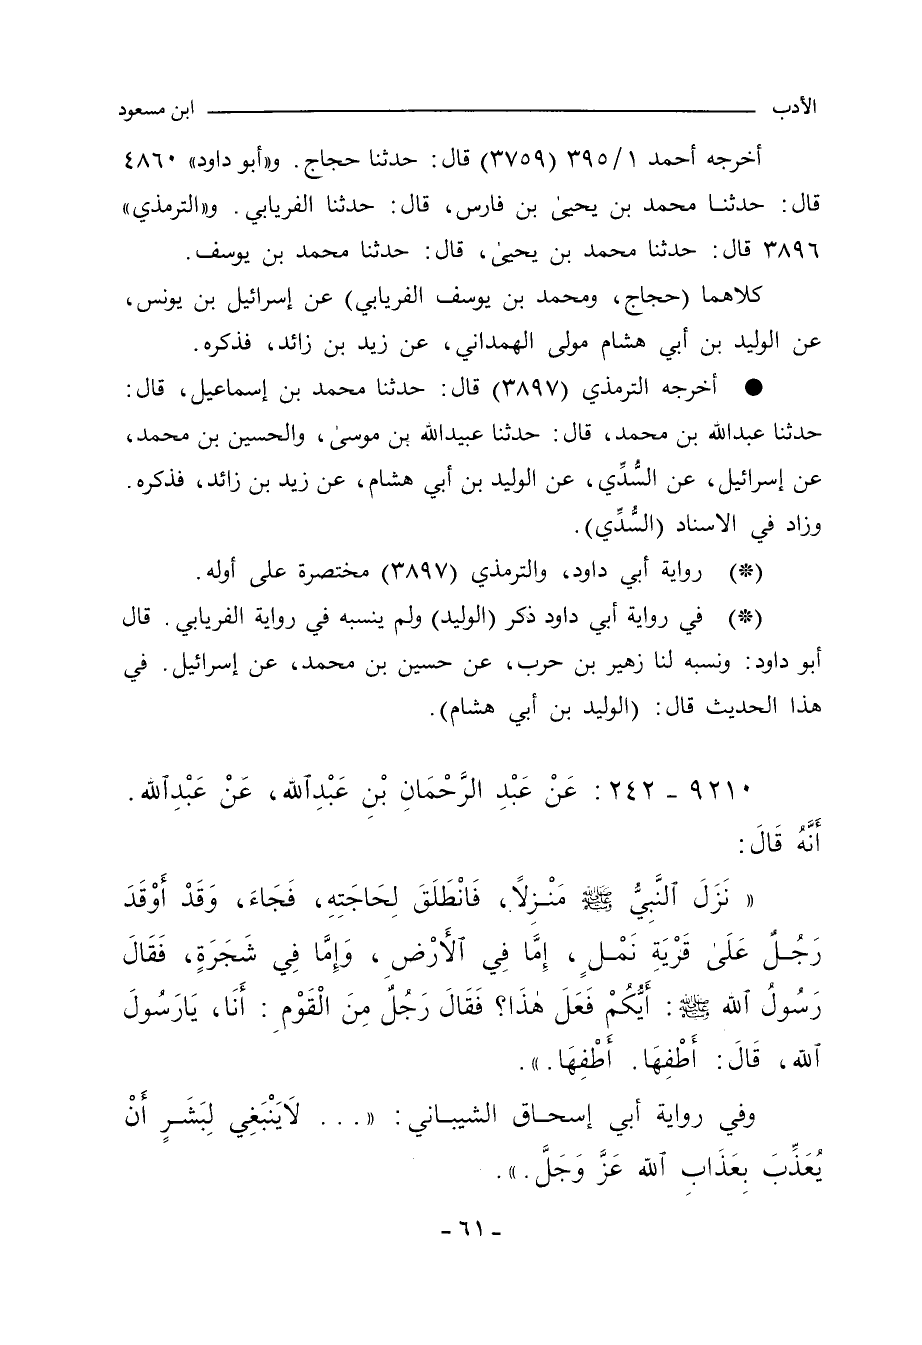 الأدب ابن مسعود
أخرجه أحمد ٣٩٥/١ (٣٧٥٩) قال: حدثنا حجاج. و«أبو داود» ٤٨٦٠
قال: حدثنا محمد بن يحيىٰ بن فارس، قال: حدثنا الفريابي. و«الترمذي»
٣٨٩٦ قال: حدثنا محمد بن يحيىٰ، قال: حدثنا محمد بن يوسف.
كلاهما (حجاج، ومحمد بن يوسف الفريابي) عن إسرائيل بن يونس،
عن الوليد بن أبي هشام مولى الهمداني، عن زيد بن زائد، فذكره.
● أخرجه الترمذي (٣٨٩٧) قال: حدثنا محمد بن إسماعيل، قال:
حدثنا عبدالله بن محمد، قال: حدثنا عبيدالله بن موسىٰ، والحسين بن محمد،
عن إسرائيل، عن السُّدِّي، عن الوليد بن أبي هشام، عن زيد بن زائد، فذكره.
وزاد في الاسناد (السُّدِّي).
(*) رواية أبي داود، والترمذي (٣٨٩٧) مختصرة على أوله.
(*) في رواية أبي داود ذكر (الوليد) ولم ينسبه في رواية الفريابي. قال
أبو داود: ونسبه لنا زهير بن حرب، عن حسين بن محمد، عن إسرائيل. في
هذا الحديث قال: (الوليد بن أبي هشام).
٩٢١٠ - ٢٤٢: عَنْ عَبْدِ الرَّحْمَانِ بْنِ عَبْدِٱللهِ، عَنْ عَبْدِٱللهِ.
أَنَّهُ قَالَ:
« نَزَلَ ٱلنَّبِيُّ ﷺ مَنْزِلاً، فَانْطَلَقَ لِحَاجَتِهِ، فَجَاءَ، وَقَدْ أَوْقَدَ
رَجُلٌ عَلَىٰ قَرْيَةِ نَمْلٍ، إِمَّا فِي ٱلأَرْضِ، وَإِمَّا فِي شَجَرَةٍ، فَقَالَ
رَسُولُ ٱللهِ ﷺ: أَيُّكُمْ فَعَلَ هٰذَا؟ فَقَالَ رَجُلٌ مِنَ الْقَوْمِ: أَنَا، يَارَسُولَ
ٱللهِ، قَالَ: أَطْفِهَا. أَطْفِهَا.».
وفي رواية أبي إسحاق الشيباني: «... لَايَنْبَغِي لِبَشَرٍ أَنْ
يُعَذِّبَ بِعَذَابِ ٱللهِ عَزَّ وَجَلَّ.».
- ٦١ -